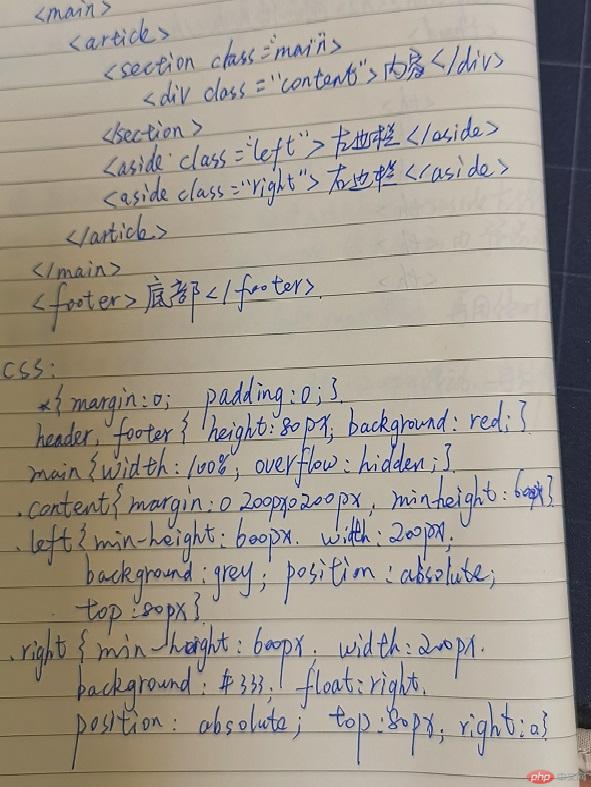 <main>
<article>
<section class="main">
<div class="content">内容</div>
</section>
<aside class="left">左边栏</aside>
<aside class="right">右边栏</aside>
</article>
</main>
<footer>底部</footer>
css:
*{margin:0; padding:0;}
header, footer{ height:80px; background:red;}
main{width:100%; overflow:hidden;}
.content{margin:0 200px 0 200px, min-height:600px}
.left{min-height:600px. width:200px;
background:grey; position:absolute;
top:80px}
.right{min-height:600px. width:200px.
background:#333; float:right.
position: absolute; top:80px; right:0}
php